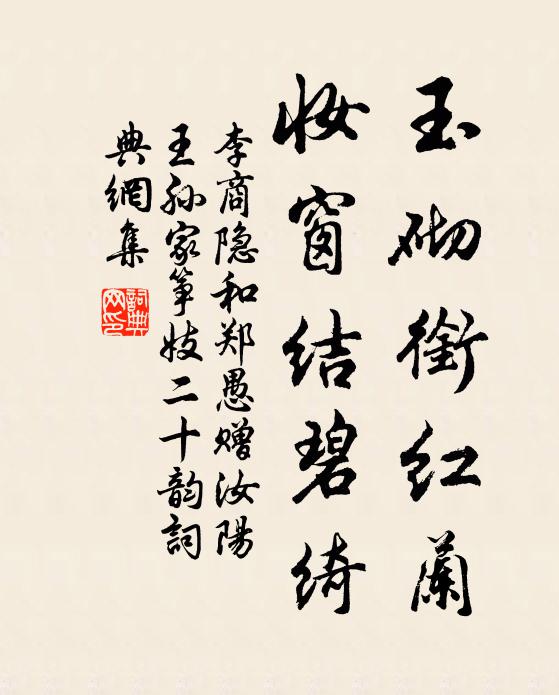 玉砌銜红蘭
妝窗结碧绮
李商隐和郑愚赠汝陽
王孙家筝妓二十韵詞
典網集
詞典
网印